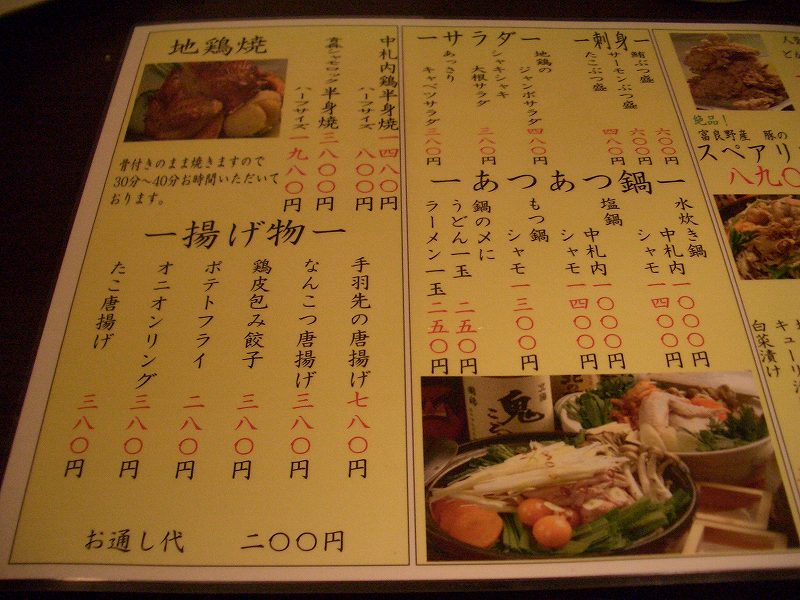 地鶏焼
中札内鶏半身焼 四八〇〇円
ハーフサイズ 八〇〇円
青森シャモロック半身焼 三八〇〇円
ハーフサイズ 一九八〇円
骨付きのまま焼きますので
30分～40分お時間いただいて
おります。
ー揚げ物ー
手羽先の唐揚げ 七八〇円
なんこつ唐揚げ 三八〇円
鶏皮包み餃子 三八〇円
ポテトフライ 二八〇円
オニオンリング 三八〇円
たこ唐揚げ 三八〇円
お通し代 二〇〇円
ー刺身ー
鮪ぶつ盛 六〇〇円
サーモンぶつ盛 六〇〇円
たこぶつ盛 四八〇円
ーサラダー
地鶏の
ジャンボサラダ 四八〇円
シャキシャキ
大根サラダ 三八〇円
あっさり
キャベツサラダ 三八〇円
ーあつあつ鍋ー
水炊き鍋
中札内 一〇〇〇円
シャモ 一四〇〇円
塩鍋
中札内 一〇〇〇円
シャモ 一四〇〇円
もつ鍋
シャモ 一三〇〇円
鍋の〆に
うどん一玉 二五〇円
ラーメン一玉 二五〇円
鬼
絶品！
富良野産 豚の
スペアリ
八九〇
キューリ
白菜漬け